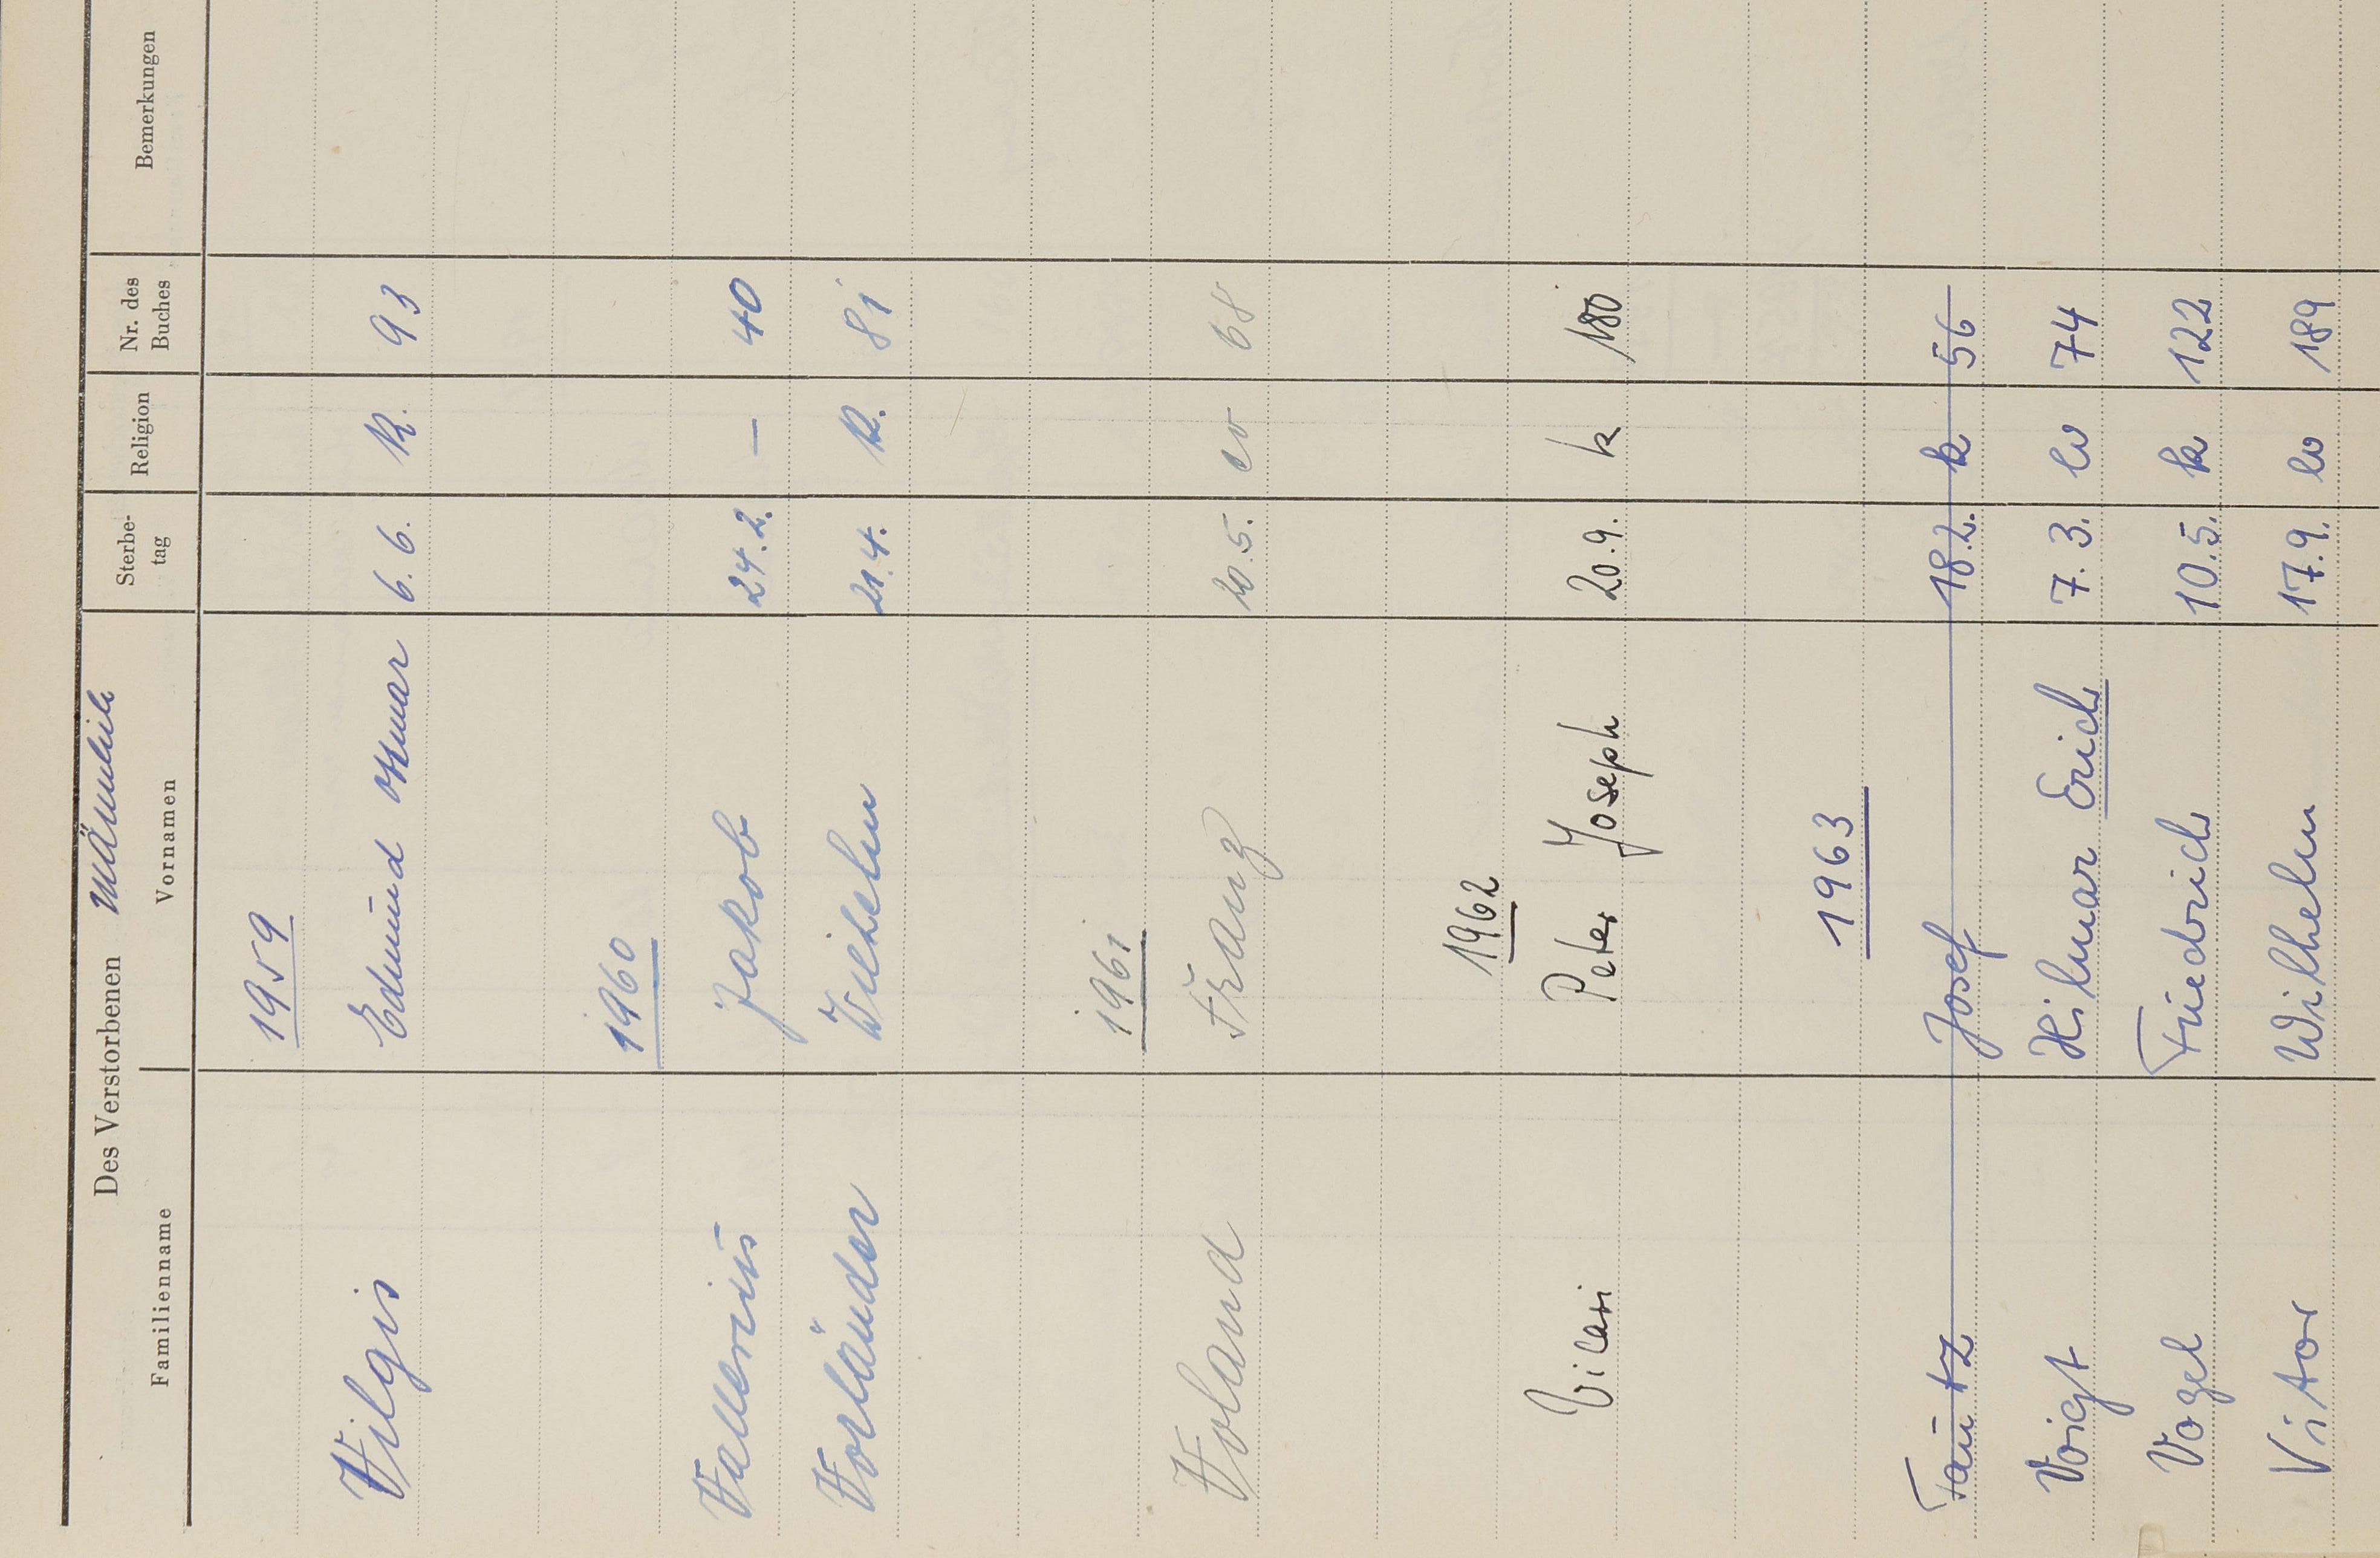 Des Verstorbenen Männlich
Familienname Vornamen Sterbe-tag Religion Nr. des Buches Bemerkungen
1959
Vilgis Edmund Otmar 6.6. K. 93
1960
Vallerius Jakob 24.2. — 40
Vorländer Wilhelm 21.4. K. 81
1961
Voland Franz 20.5. ev 68
1962
Vilari Peter Joseph 20.9. k 180
1963
Fautz Josef 18.2. k 56
Voigt Hilmar Erich 7.3. ev 74
Vogel Friedrich 10.5. k 122
Vitor Wilhelm 17.9. ev 189